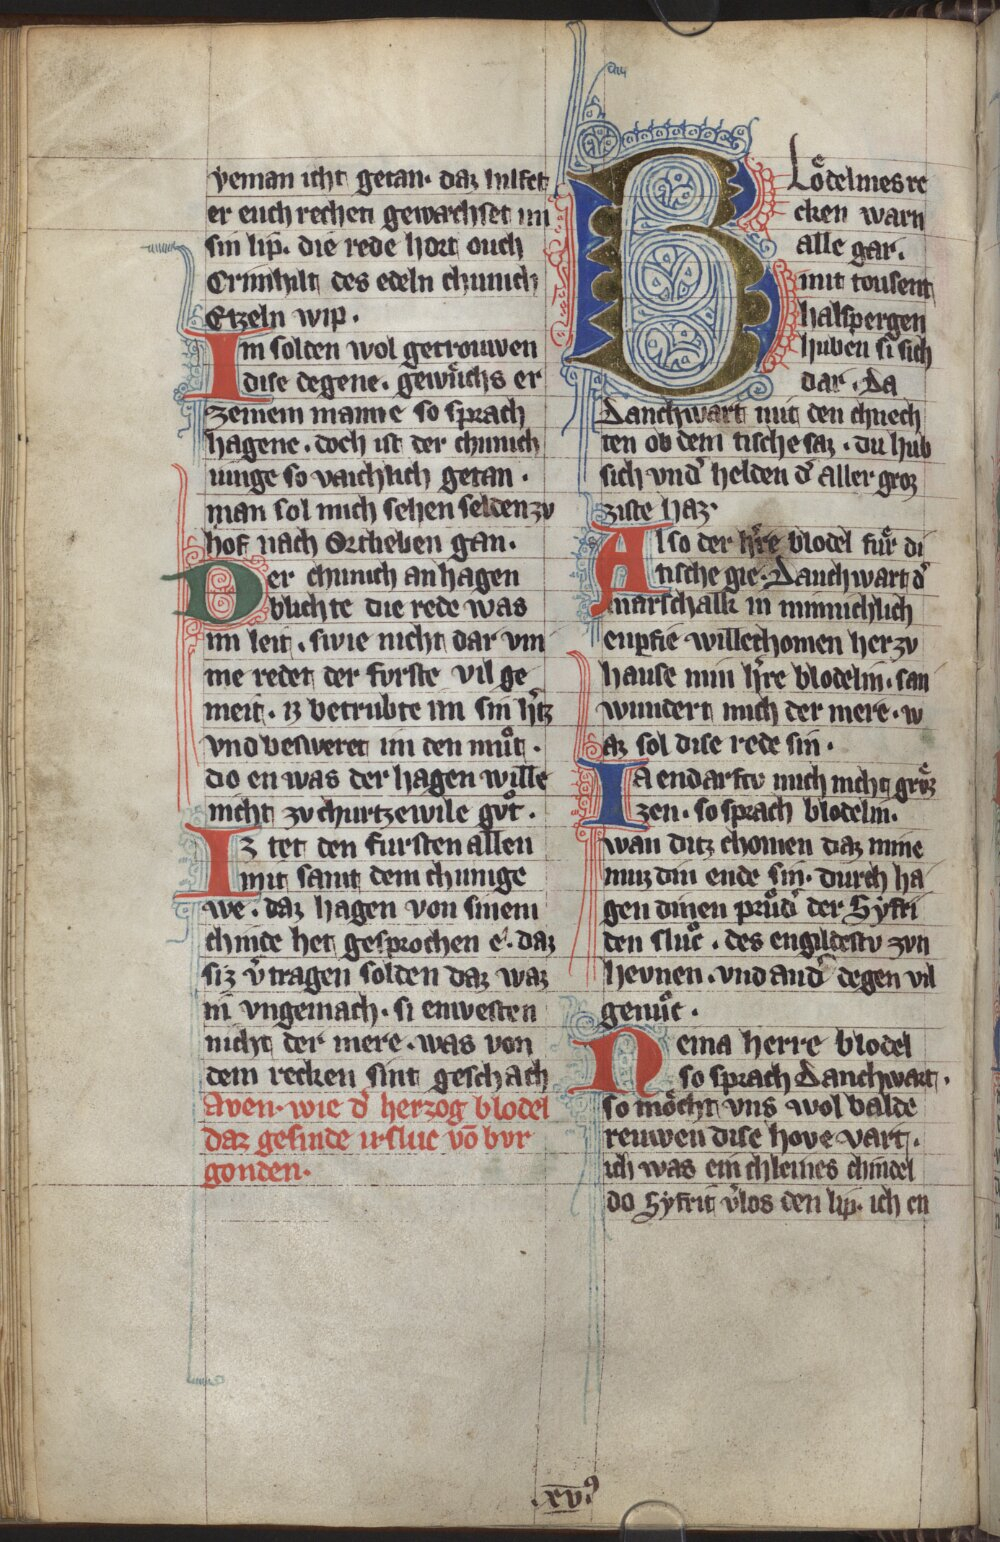 yeman icht getan· daz hilfet
er euch rechen gewachset im
sin lip· die rede hort ouch
Crimhilt des edeln chunich
Etzeln wip·
Im solden wol getrouwen
dise degene· gewůchs er
zeinem manne so sprach
hagene· doch ist der chunich
iunge so vaichlich getan·
man sol mich sehen selden zv
hof nach Ortheben gan·
Der chunich an hagen
blichte die rede was
im leit· swie nicht dar vm
me redet der furste vil ge
meit· iz betrubte im sin h'tz
vnd besweret im den můt·
do en was der hagen wille
nicht zv churtzewile gůt·
Iz tet den fursten allen
mit samt dem chunige
we· daz hagen von sinem
chinde het gesprochen e· daz
siz v'tragen solden daz waz
in vngemach· si enwesten
nicht der mere· was von
dem recken sint geschach
Aven· wie d' herzog blodel
daz gesinde irsluc vō bvr
gonden·
Blödelmes re
cken warn
alle gar·
mit tousent
halspergen
huben si sich
dar· da
Danchwart mit den chnech
ten ob dem tische saz· du hub
sich vnd' helden d' aller groz
ziste haz·
Also der h're blodel für di
tische gie· Danchwart d'
marschalk in minnichlich
enpfie willechomen her zv
hause min h're blodelin· san
wundert mich der mere· w
az sol dise rede sin·
Ia endarftv mich nicht gröz
zen· so sprach blodelin·
wan ditz chomen daz mine
muz din ende sin· durch ha
gen dinen průd' der Syfri
den sluc· des engildestv zvn
hevnen· vnd and' degen vil
genůc·
Neina herre blodel
so sprach Danchwart·
so möcht vns wol balde
reuwen dise hove vart·
ich was ein chleines chindel
do Syfrit v'los den lip· ich en
·xv9·